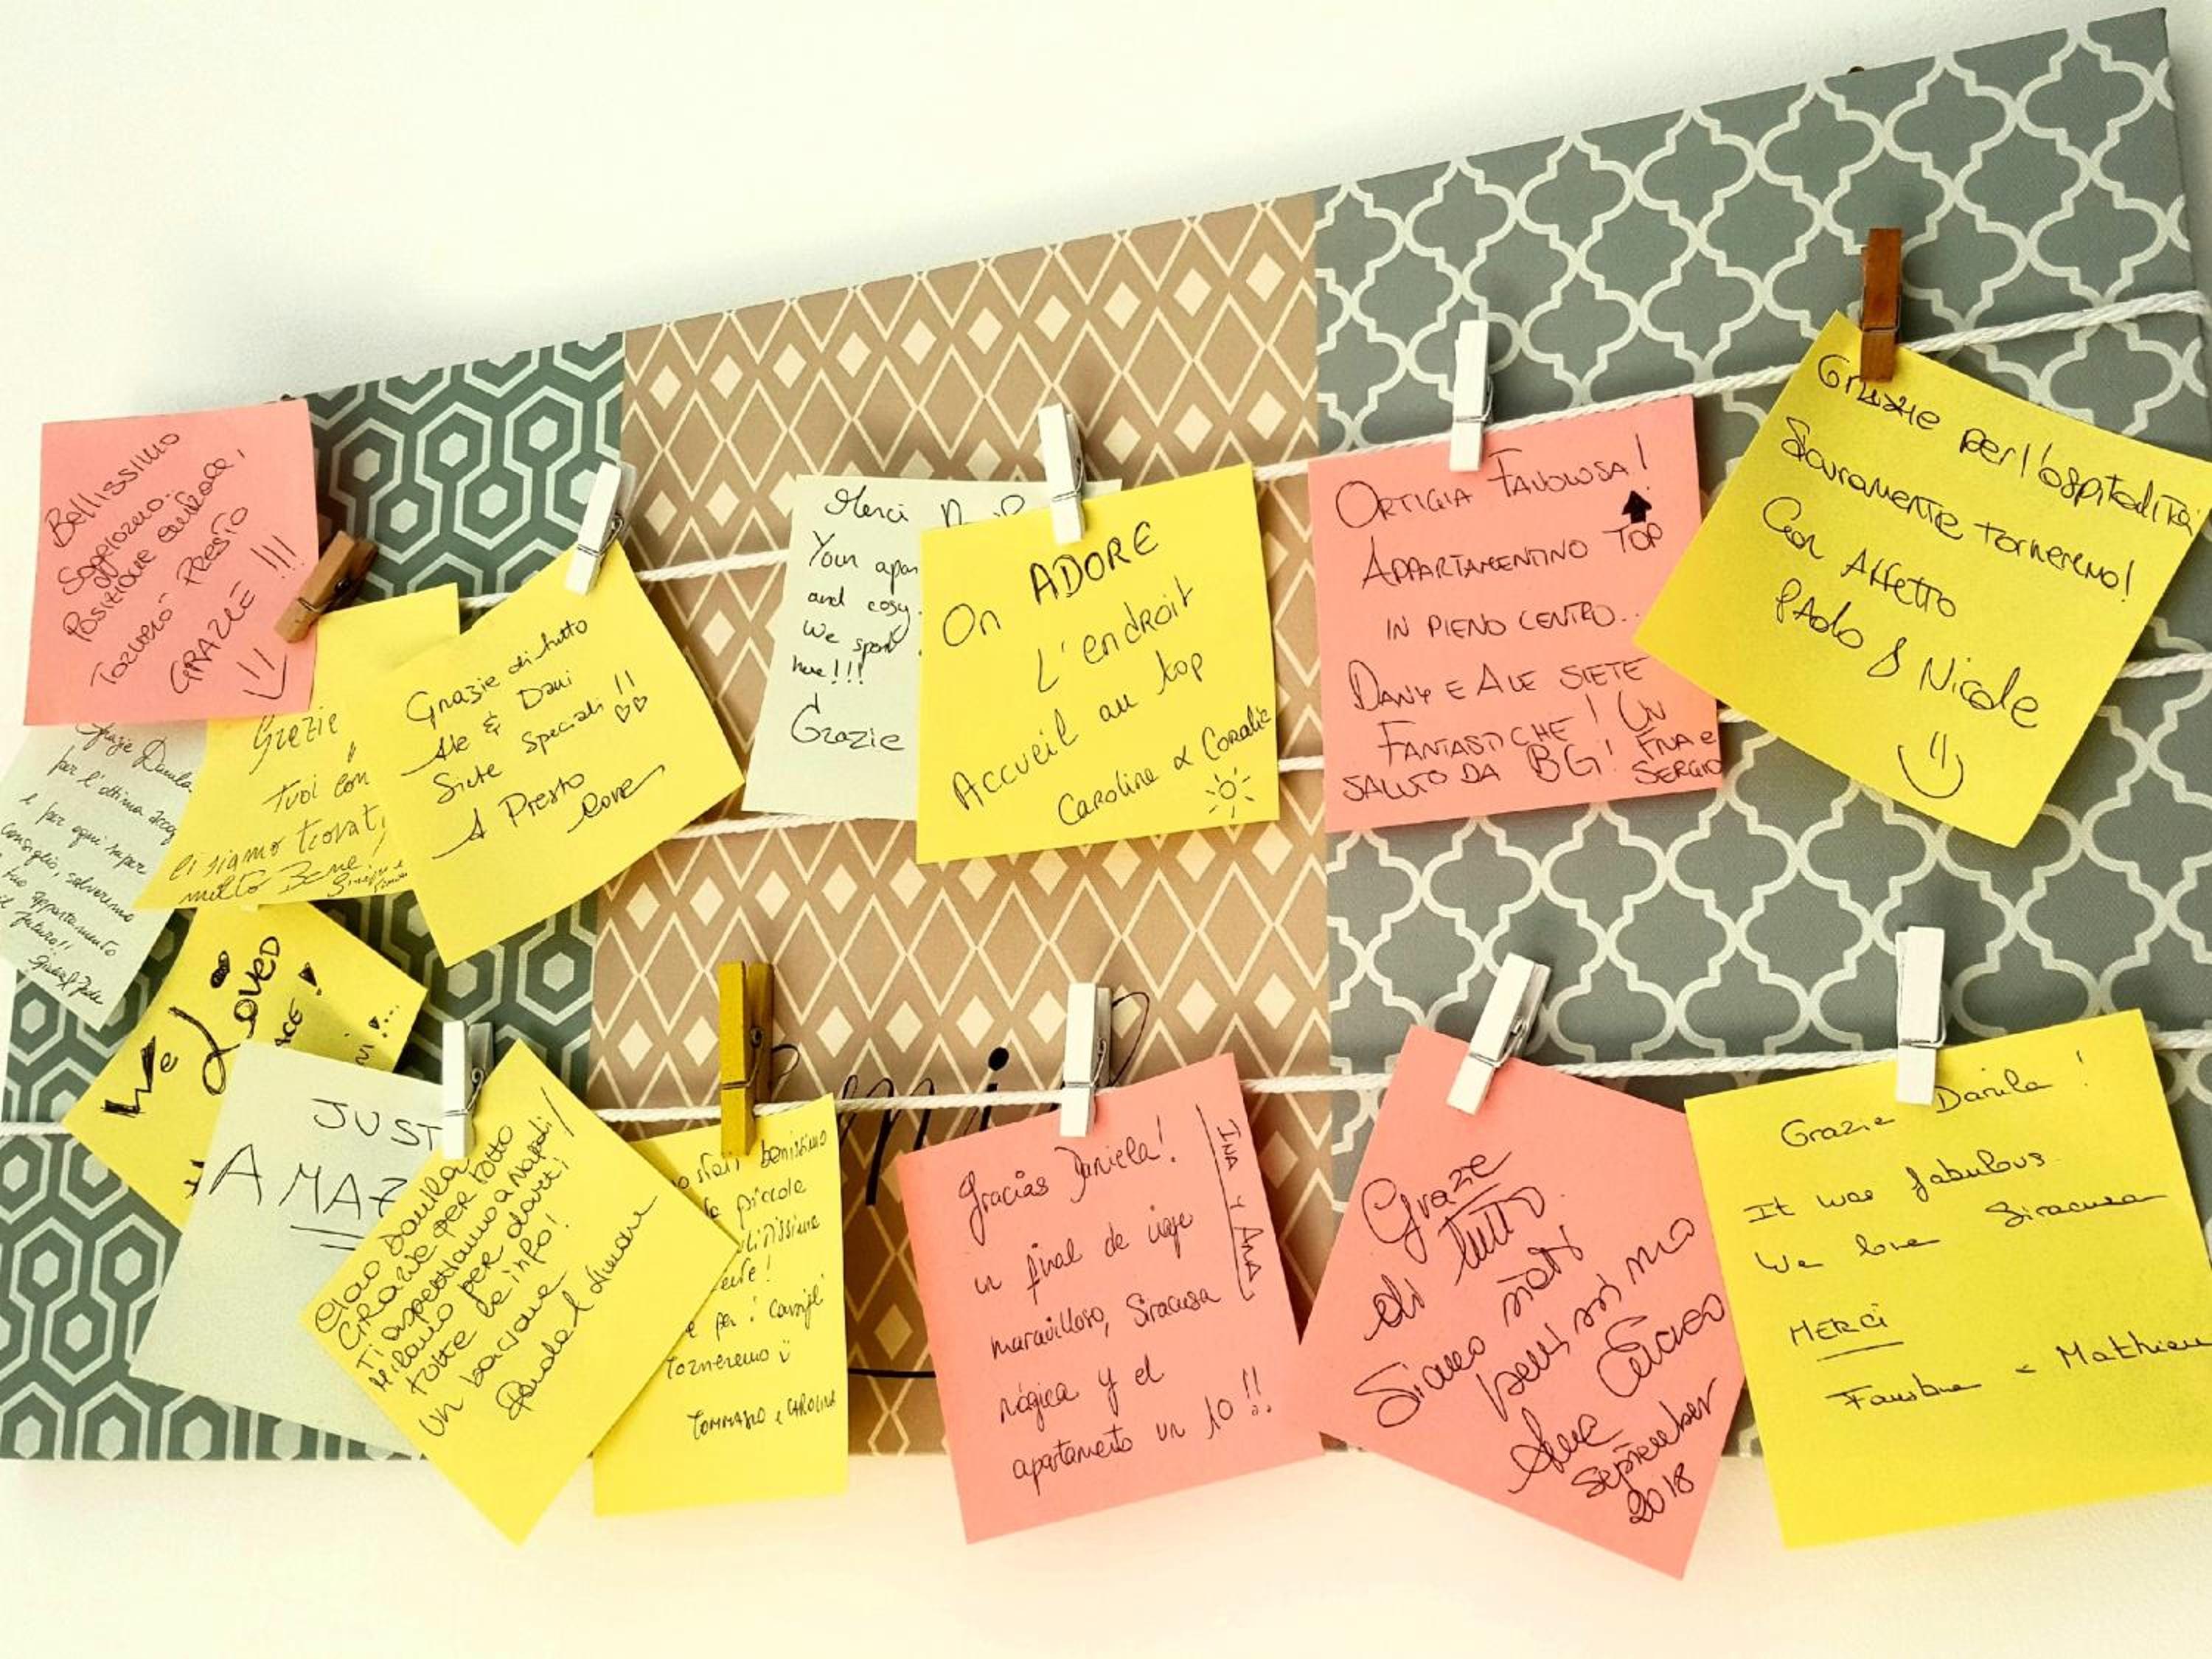 Bellissimo
Soggiorno.
Posizione centrale,
Tornerò Presto
GRAZIE !!!
Grazie Danila
per l'ottima accog
e per ogni super
consiglio, salveremo
tuo appartamento
il futuro!!
Grazie
Tuoi con
ci siamo trovati
molto Bene!
Grazie di tutto
Ale & Dani
Siete speciali !!
A Presto
Merci
Your apar
and cosy.
We spent
here!!!
Grazie
On ADORE
L'endroit
Accueil au top
Caroline & Coralie
ORTIGIA FAVOLOSA!
APPARTAMENTINO TOP
IN PIENO CENTRO...
DANY E ALE SIETE
FANTASTICHE! UN
SALUTO DA BG! ENA e
SERGIO
Grazie per l'ospitalità
Sicuramente torneremo!
Con Affetto
PAolo & Nicole
We Loved
ACE!
JUST
AMAZ
Ciao Danila,
Grazie per tutto
Ti aspettiamo a Napoli/
Milano per darti
tutte le info!
Un bacione
benissimo
piccole
e per i consigli
Torneremo
TOMMASO e CAROLINA
Gracias Daniela!
un final de viaje
maravilloso, Siracusa
mágica y el
apartamento un 10!!
INA Y ANA
Grazie
di tutto.
Siamo stati
benissimo
Ciao
September
2018
Grazie Danila!
It was fabulous
We love Siracusa
MERCi
Faustine & Mathieu